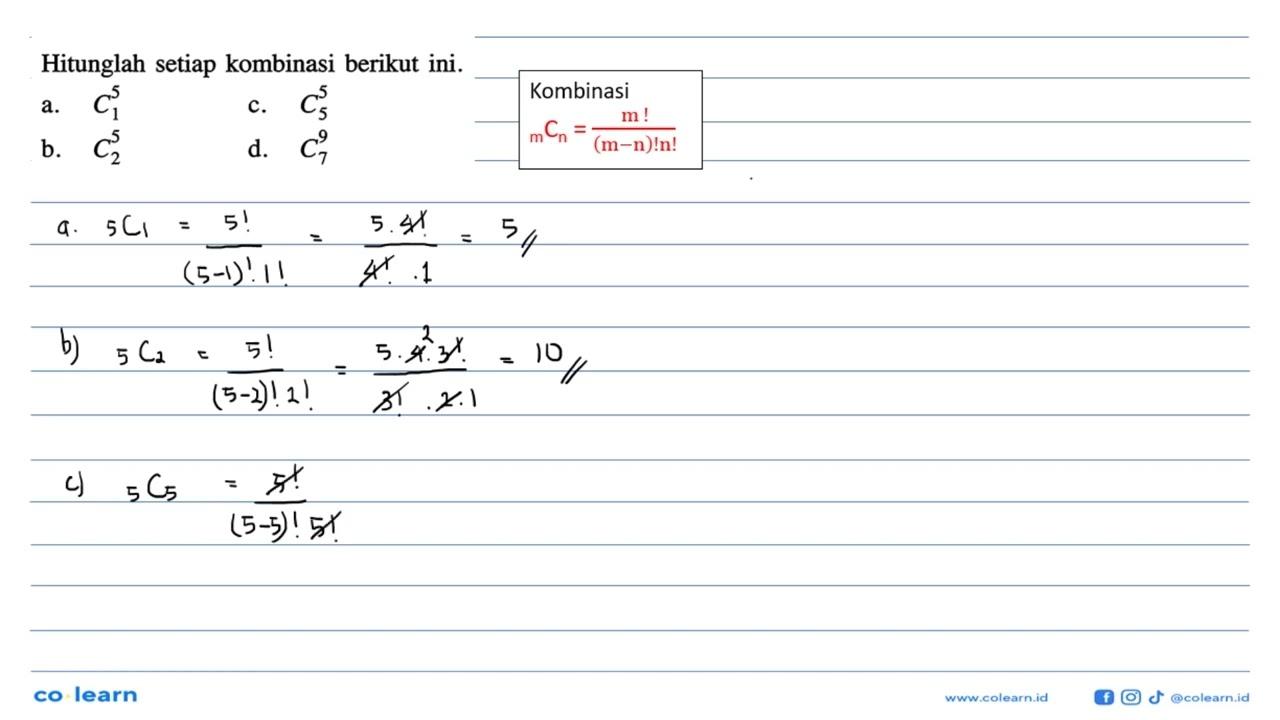 Hitunglah setiap kombinasi berikut ini.
a. C₁⁵ c. C₅⁵
b. C₂⁵ d. C₇⁹
Kombinasi
ₘCₙ = m! / (m−n)!n!
a. ₅C₁ = 5! / (5-1)! 1! = 5.4! / 4! .1 = 5 //
b) ₅C₂ = 5! / (5-2)! 2! = 5.4² 3! / 3! .2.1 = 10 //
c) ₅C₅ = 5! / (5-5)! 5!
co·learn
www.colearn.id
@colearn.id